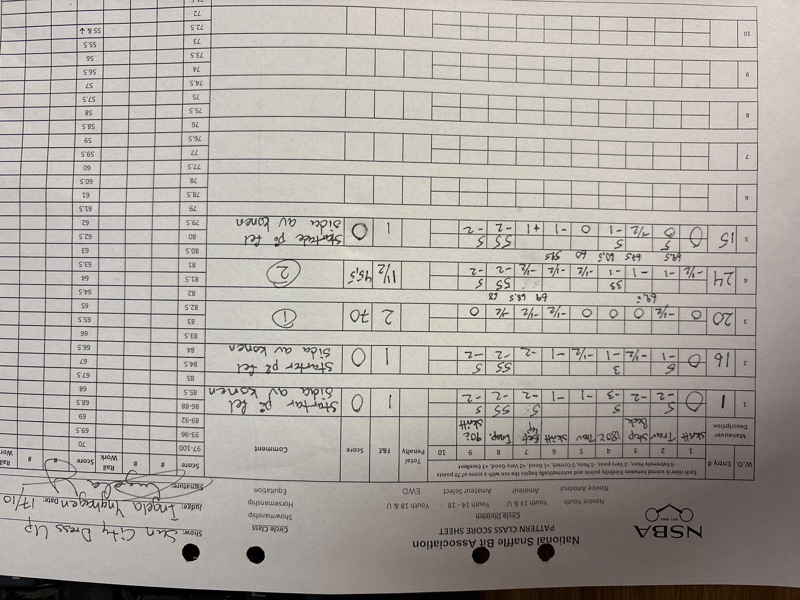 NSBA
National Snaffle Bit Association
PATTERN CLASS SCORE SHEET
Circle Division
Novice Youth Youth 13 & U Youth 14 - 18 Youth 18 & U
Novice Amateur Amateur Amateur Select EWD
Circle Class
Showmanship
Horsemanship
Equitation
Show: Sun City Dress Up
Judge: Ingela Date: 17/10
Signature:
Each rider is scored between 0-Infinity points and automatically begins the run with a score of 70 points
-3 Extremely Poor, -2 Very poor, -1 Poor, 0 Correct, +1 Good, +2 Very Good, +3 Excellent
W.O. Entry # 1 2 3 4 5 6 7 8 9 10 Total Penalty F&E Score Comment
Maneuver Description Skritt Trav Stop Back 180° Trav Skritt 90° Skritt
1 1 0 -2 -2 -3 -1 -1 -2 -2 -2 1 0 Startar på fel sida av konen
2 16 0 -1 -1/2 -1 -1/2 -1 -2 -2 -2 1 0 Starter på fel sida av konen
3 20 0 -1/2 0 0 0 -1/2 -1/2 -1/2 0 2 70 1
69.5 69 68.5 68
4 24 -1/2 -1 -1 -1 -1/2 -1/2 -1/2 -2 -2 1 1/2 45,5 2
5 15 0 0 -1/2 -1 0 -1 +1 -2 -2 1 0 Startade på fel sida av konen
6
7
8
9
10
Score # # Rail Work Score # # Rail
97-100 70
93-96 69.5
89-92 69
86-88 68.5
85.5 68
85 67.5
84.5 67
84 66.5
83.5 66
83 65.5
82.5 65
82 64.5
81.5 64
81 63.5
80.5 63
80 62.5
79.5 62
79 61.5
78.5 61
78 60.5
77.5 60
77 59.5
76.5 59
76 58.5
75.5 58
75 57.5
74.5 57
74 56.5
73.5 56
73 55.5
72.5 55 & ↓
72